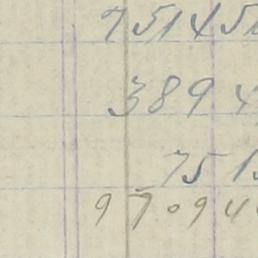 75145
3894
751
97094